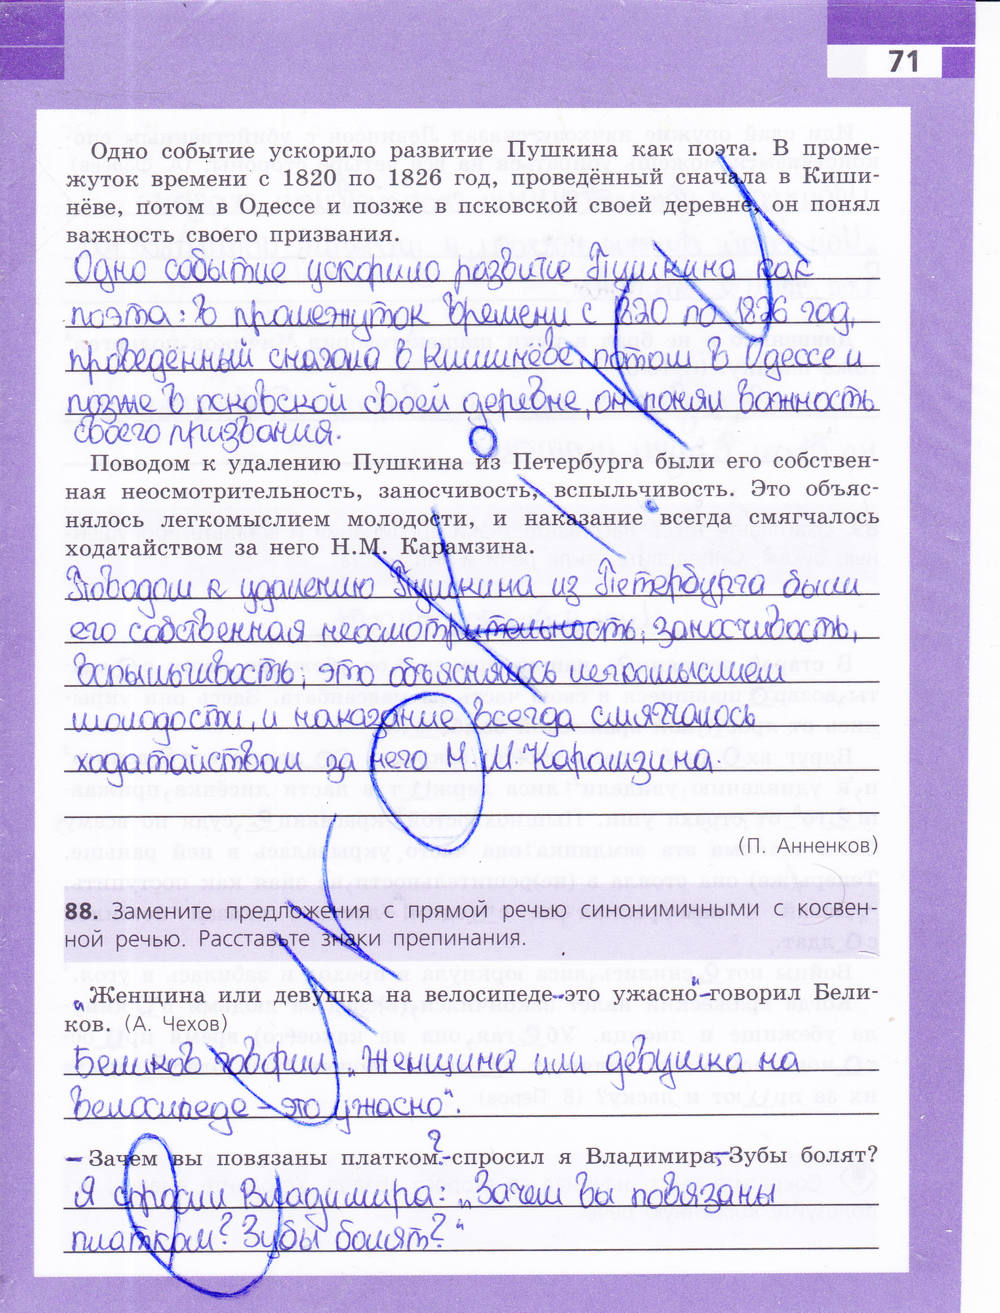 71
Одно событие ускорило развитие Пушкина как поэта. В проме-
жуток времени с 1820 по 1826 год, проведённый сначала в Киши-
нёве, потом в Одессе и позже в псковской своей деревне, он понял
важность своего призвания.
Одно событие ускорило развитие Пушкина как
поэта: в промежуток времени с 1820 по 1826 год,
проведённый сначала в Кишинёве, потом в Одессе и
позже в псковской своей деревне, он понял важность
своего призвания.
Поводом к удалению Пушкина из Петербурга были его собствен-
ная неосмотрительность, заносчивость, вспыльчивость. Это объяс-
нялось легкомыслием молодости, и наказание всегда смягчалось
ходатайством за него Н.М. Карамзина.
Поводом к удалению Пушкина из Петербурга были
его собственная неосмотрительность, заносчивость,
вспыльчивость; это объяснялось легкомыслием
молодости, и наказание всегда смягчалось
ходатайством за него Н.М. Карамзина.
(П. Анненков)
88. Замените предложения с прямой речью синонимичными с косвен-
ной речью. Расставьте знаки препинания.
„Женщина или девушка на велосипеде – это ужасно“ – говорил Бели-
ков. (А. Чехов)
Беликов говорил „Женщина или девушка на
велосипеде – это ужасно“.
– Зачем вы повязаны платком? – спросил я Владимира, – Зубы болят?
Я спросил Владимира: „Зачем вы повязаны
платком? Зубы болят?“